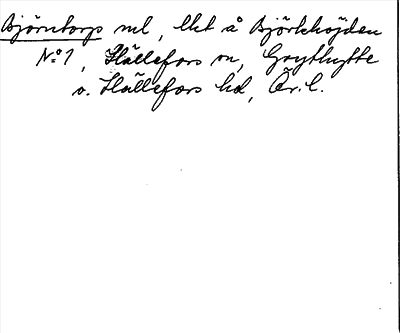 Björntorps ml, lht å Björkhöjden
No 1, Hällefors sn, Grythytte
o. Hällefors hd, Ör. l.